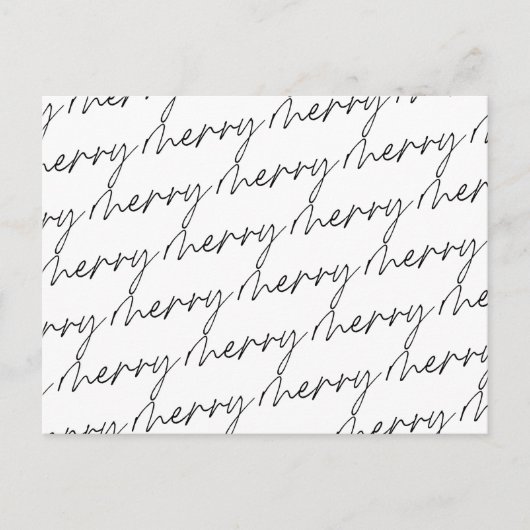 y merry
merry merry merry me
rry merry merry merry m
merry merry merry mer
rry merry merry merry m
y merry merry merry me
merry merry merry merry
merry m